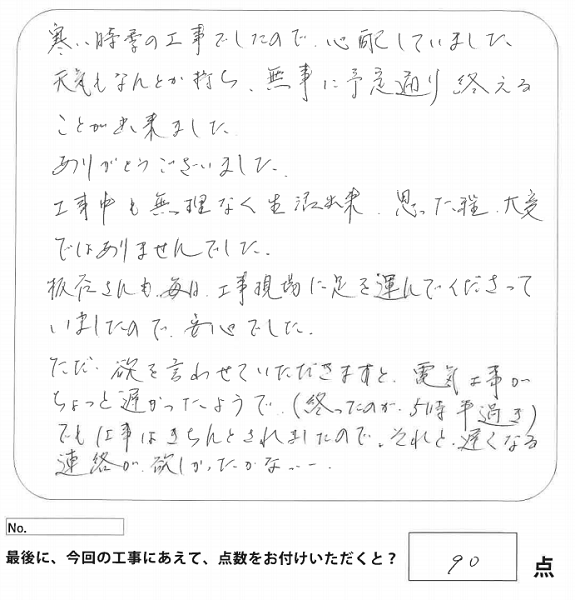 寒い時季の工事でしたので、心配していました。
天気もなんとか持ち、無事に予定通り終える
ことが出来ました。
ありがとうございました。
工事中も無理なく生活出来、思った程、大変
ではありませんでした。
さんも、毎日、工事現場に足を運んでくださって
いましたので、安心でした。
ただ、欲を言わせていただきますと、電気工事が
ちょっと遅かったようで、(終ったのが、5時半過ぎ)
でも仕事はきちんとされましたので。それと、遅くなる
連絡が、欲しかったかな…。
No.
最後に、今回の工事にあえて、点数をお付けいただくと？ 90 点